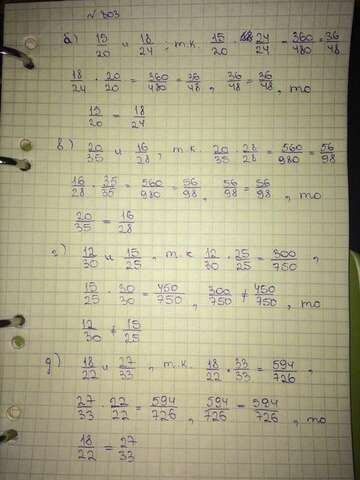 № 303
б) 15/20 и 18/24, т.к. 15/20 · 24/24 = 360/480 = 36/48
18/24 · 20/20 = 360/480 = 36/48, 36/48 = 36/48, то
15/20 = 18/24
в) 20/35 и 16/28, т.к. 20/35 · 28/28 = 560/980 = 56/98
16/28 · 35/35 = 560/980 = 56/98, 56/98 = 56/98, то
20/35 = 16/28
г) 12/30 и 15/25, т.к 12/30 · 25/25 = 300/750,
15/25 · 30/30 = 450/750, 300/750 ≠ 450/750, то
12/30 ≠ 15/25
д) 18/22 и 27/33, т.к. 18/22 · 33/33 = 594/726,
27/33 · 22/22 = 594/726, 594/726 = 594/726, то
18/22 = 27/33